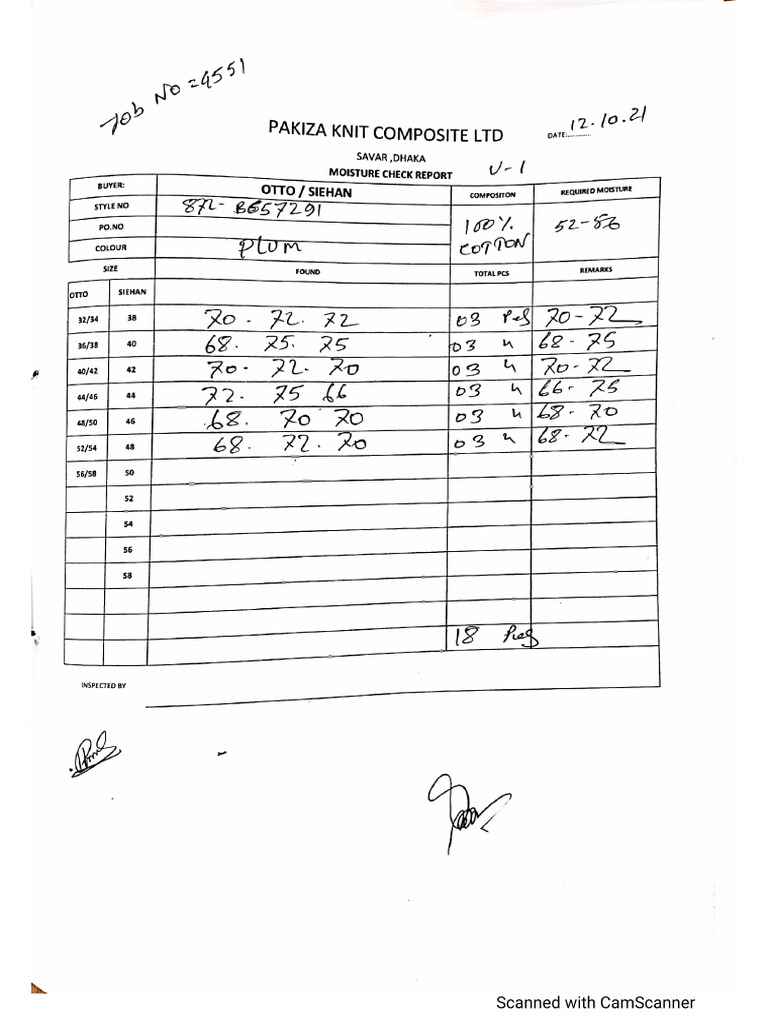 Job No = 4551
PAKIZA KNIT COMPOSITE LTD
DATE:............ 12.10.21
SAVAR ,DHAKA
MOISTURE CHECK REPORT U-1
BUYER: OTTO / SIEHAN COMPOSITON REQUIRED MOISTURE
STYLE NO 872- B657291 100%
PO.NO COTTON
COLOUR Plum
SIZE FOUND TOTAL PCS REMARKS
OTTO SIEHAN
32/34 38 70 - 72. 72 03 Pcs 70-72
36/38 40 68. 75. 75 03 " 68-75
40/42 42 70 - 72. 70 03 " 70-72
44/46 44 72. 75 66 03 " 66-75
48/50 46 68. 70 70 03 " 68-70
52/54 48 68. 72. 70 03 " 68-72
56/58 50
52
54
56
58
18 Pcs
INSPECTED BY
Scanned with CamScanner